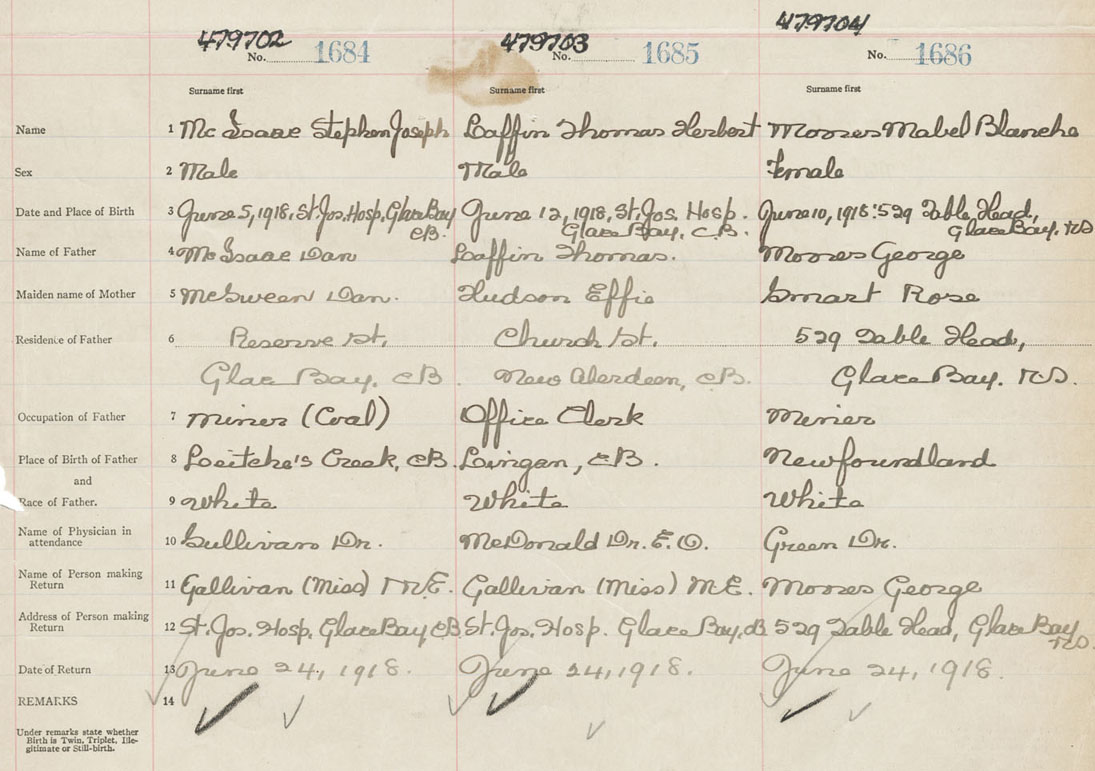 479702 479703 479704
No. 1684 No. 1685 No. 1686
Surname first Surname first Surname first
Name 1 Mc Isaac Stephen Joseph Laffin Thomas Herbert Moores Mabel Blanche
Sex 2 Male Male Female
Date and Place of Birth 3 June 5, 1918, St. Jos. Hosp, Glace Bay June 12, 1918, St. Jos. Hosp. June 10, 1918: 529 Table Head,
CB. Glace Bay, C.B. Glace Bay. NS
Name of Father 4 Mc Isaac Dan Laffin Thomas. Moores George
Maiden name of Mother 5 Dan. Hudson Effie Smart Rose
Residence of Father 6 Reserve St, Church St, 529 Table Head,
Glace Bay, CB New Aberdeen, CB. Glace Bay. N.S.
Occupation of Father 7 Miner (Coal) Office Clerk Miner
Place of Birth of Father 8 Leitche's Creek, CB. Lingan, CB. Newfoundland
and
Race of Father. 9 White White White
Name of Physician in
attendance 10 Sullivan Dr. McDonald Dr. E.O. Green Dr.
Name of Person making
Return 11 Gallivan (Miss) M.E. Gallivan (Miss) M.E. Moores George
Address of Person making
Return 12 St. Jos. Hosp. Glace Bay CB St. Jos. Hosp. Glace Bay, CB 529 Table Head, Glace Bay
NS.
Date of Return 13 June 24, 1918. June 24, 1918. June 24, 1918.
REMARKS 14
Under remarks state whether
Birth is Twin, Triplet, Ille-
gitimate or Still-birth.